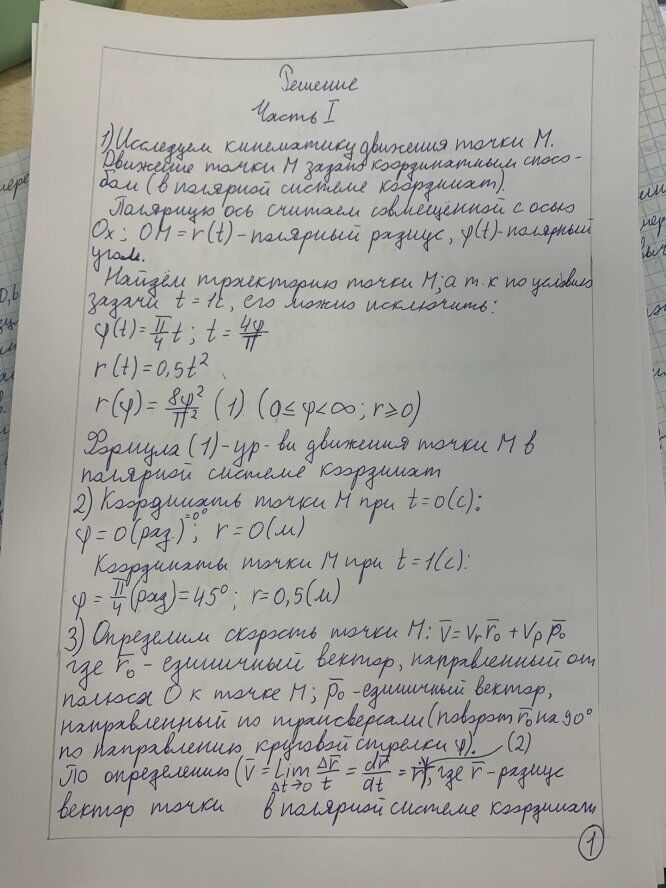 Решение
Часть I
1) Исследуем кинематику движения точки М.
Движение точки М задано координатным спосо-
бом (в полярной системе координат).
Полярную ось считаем совмещённой с осью
Ox; OM = r(t) - полярный радиус, φ(t) - полярный
угол.
Найдём траекторию точки М; а т.к по условию
задачи t = 1с, его можно исключить:
φ(t) = π/4 t; t = 4φ/π
r(t) = 0,5t²
r(φ) = 8φ²/π² (1) (0 ≤ φ < ∞; r ≥ 0)
Формула (1) - ур-ви движения точки М в
полярной системе координат
2) Координаты точки М при t = 0(с):
φ = 0(рад.) = 0°; r = 0(м)
Координаты точки М при t = 1(с):
φ = π/4 (рад) = 45°; r = 0,5(м)
3) Определим скорость точки М: v̄ = vr r̄₀ + vp p̄₀
где r̄₀ - единичный вектор, направленный от
полюса О к точке М; p̄₀ - единичный вектор,
направленный по трансверсали (поворот r̄₀ на 90°
по направлению круговой стрелки φ). (2)
По определению (v̄ = lim Δt→0 Δr̄/t = dr̄/dt = r̄), где r̄ - радиус
вектор точки в полярной системе координат
1